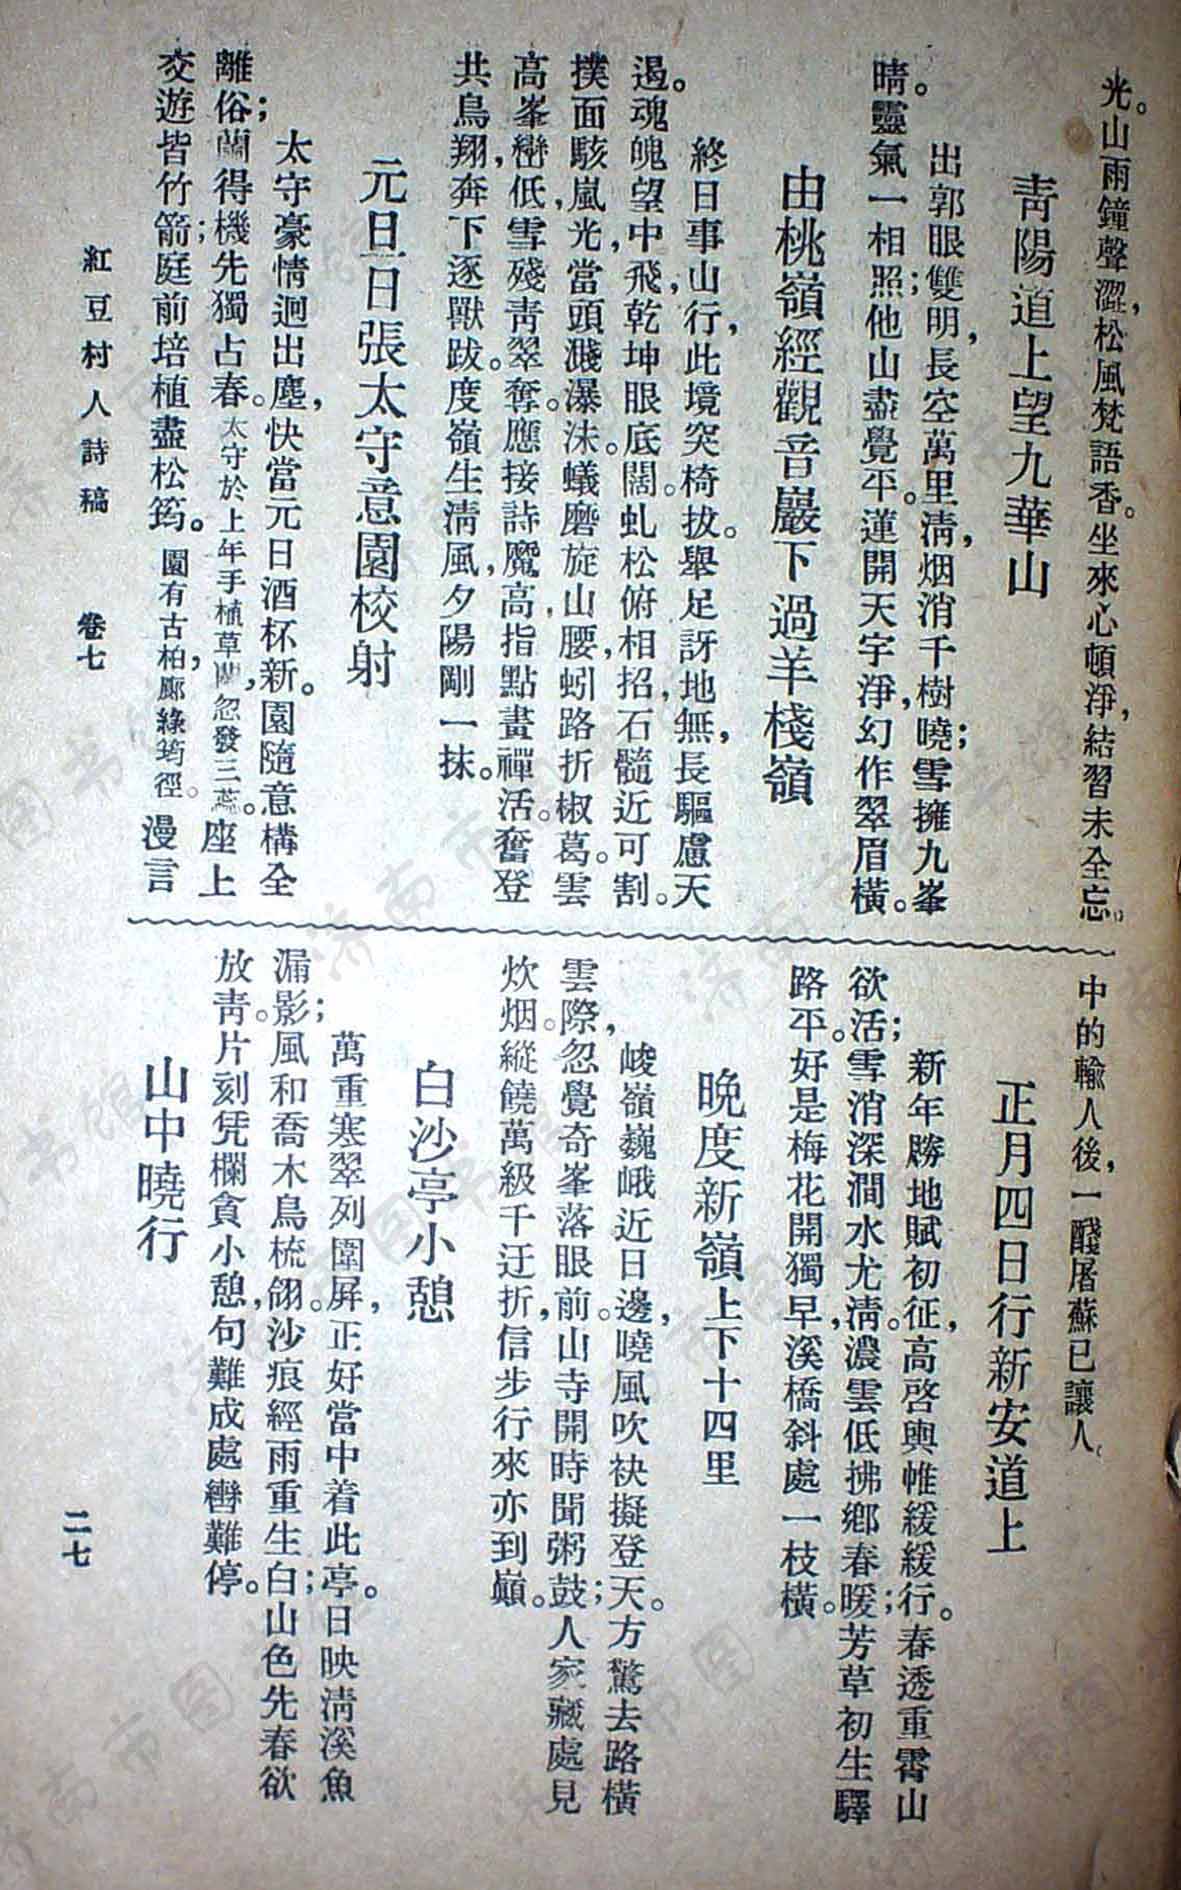 光。山雨鐘聲澀，松風梵語香。坐來心頓淨，結習未全忘。
青陽道上望九華山
出郭眼雙明，長空萬里清，烟消千樹曉；雪擁九峯
晴。靈氣一相照；他山盡覺平。蓮開天宇淨，幻作翠眉橫。
由桃嶺經觀音巖下過羊棧嶺
終日事山行，此境突椅拔。舉足訝地無，長驅慮天
遏。魂魄望中飛，乾坤眼底闊。虬松俯相招，石髓近可割。
撲面駭嵐光，當頭濺瀑沫。蟻磨旋山腰，蚓路折椒葛。雲
高峯巒低，雪殘青翠奪。應接詩魔高，指點畫禪活。奮登
共鳥翔，奔下逐獸跋。度嶺生清風，夕陽剛一抹。
元旦日張太守意園校射
太守豪情迥出塵，快當元日酒杯新。園隨意構全
離俗；蘭得機先獨占春。太守於上年手植草蘭，忽發三蕊。座上
交遊皆竹箭；庭前培植盡松筠。園有古柏廊，綠筠徑。漫言
紅豆村人詩稿　卷七
中的輸人後，一醆屠蘇已讓人。
正月四日行新安道上
新年勝地賦初征，高啓輿帷緩緩行。春透重霄山
欲活；雪消深澗水尤清。濃雲低拂鄉春暖；芳草初生驛
路平。好是梅花開獨早，溪橋斜處一枝橫。
晚度新嶺上下十四里
峻嶺巍峨近日邊，曉風吹袂擬登天。方驚去路橫
雲際，忽覺奇峯落眼前。山寺開時聞粥鼓；人家藏處見
炊烟。縱饒萬級千迂折，信步行來亦到巔。
白沙亭小憩
萬重寒翠列圍屏，正好當中着此亭。日映清溪魚
漏影；風和喬木鳥梳翎。沙痕經雨重生白；山色先春欲
放青。片刻凭欄貪小憩，句難成處轡難停。
山中曉行
二七